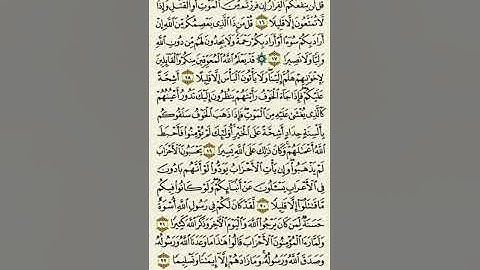 قُل لَّن يَنفَعَكُمُ ٱلْفِرَارُ إِن فَرَرْتُم مِّنَ ٱلْمَوْتِ أَوِ ٱلْقَتْلِ وَإِذًا
لَّا تُمَتَّعُونَ إِلَّا قَلِيلًا ١٦ قُلْ مَن ذَا ٱلَّذِى يَعْصِمُكُم مِّنَ ٱللَّهِ إِنْ
أَرَادَ بِكُمْ سُوٓءًا أَوْ أَرَادَ بِكُمْ رَحْمَةً وَلَا يَجِدُونَ لَهُم مِّن دُونِ ٱللَّهِ
وَلِيًّا وَلَا نَصِيرًا ١٧ ۞ قَدْ يَعْلَمُ ٱللَّهُ ٱلْمُعَوِّقِينَ مِنكُمْ وَٱلْقَآئِلِينَ
لِإِخْوَٰنِهِمْ هَلُمَّ إِلَيْنَا وَلَا يَأْتُونَ ٱلْبَأْسَ إِلَّا قَلِيلًا ١٨ أَشِحَّةً
عَلَيْكُمْ فَإِذَا جَآءَ ٱلْخَوْفُ رَأَيْتَهُمْ يَنظُرُونَ إِلَيْكَ تَدُورُ أَعْيُنُهُمْ
كَٱلَّذِى يُغْشَىٰ عَلَيْهِ مِنَ ٱلْمَوْتِ فَإِذَا ذَهَبَ ٱلْخَوْفُ سَلَقُوكُم
بِأَلْسِنَةٍ حِدَادٍ أَشِحَّةً عَلَى ٱلْخَيْرِ أُو۟لَٰٓئِكَ لَمْ يُؤْمِنُوا۟ فَأَحْبَطَ
ٱللَّهُ أَعْمَٰلَهُمْ وَكَانَ ذَٰلِكَ عَلَى ٱللَّهِ يَسِيرًا ١٩ يَحْسَبُونَ ٱلْأَحْزَابَ
لَمْ يَذْهَبُوا۟ وَإِن يَأْتِ ٱلْأَحْزَابُ يَوَدُّوا۟ لَوْ أَنَّهُم بَادُونَ
فِى ٱلْأَعْرَابِ يَسْـَٔلُونَ عَنْ أَنۢبَآئِكُمْ وَلَوْ كَانُوا۟ فِيكُم
مَّا قَٰتَلُوٓا۟ إِلَّا قَلِيلًا ٢٠ لَّقَدْ كَانَ لَكُمْ فِى رَسُولِ ٱللَّهِ أُسْوَةٌ
حَسَنَةٌ لِّمَن كَانَ يَرْجُوا۟ ٱللَّهَ وَٱلْيَوْمَ ٱلْأَخِرَ وَذَكَرَ ٱللَّهَ كَثِيرًا ٢١
وَلَمَّا رَءَا ٱلْمُؤْمِنُونَ ٱلْأَحْزَابَ قَالُوا۟ هَٰذَا مَا وَعَدَنَا ٱللَّهُ وَرَسُولُهُۥ
وَصَدَقَ ٱللَّهُ وَرَسُولُهُۥ وَمَا زَادَهُمْ إِلَّآ إِيمَٰنًا وَتَسْلِيمًا ٢٢